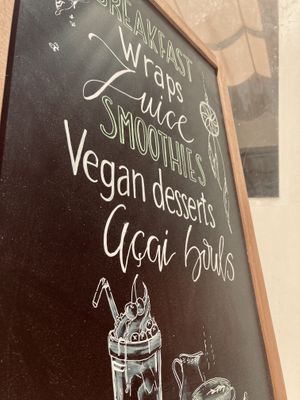 BREAKFAST
Wraps
Juice
SMOOTHIES
Vegan desserts
Açai bowls